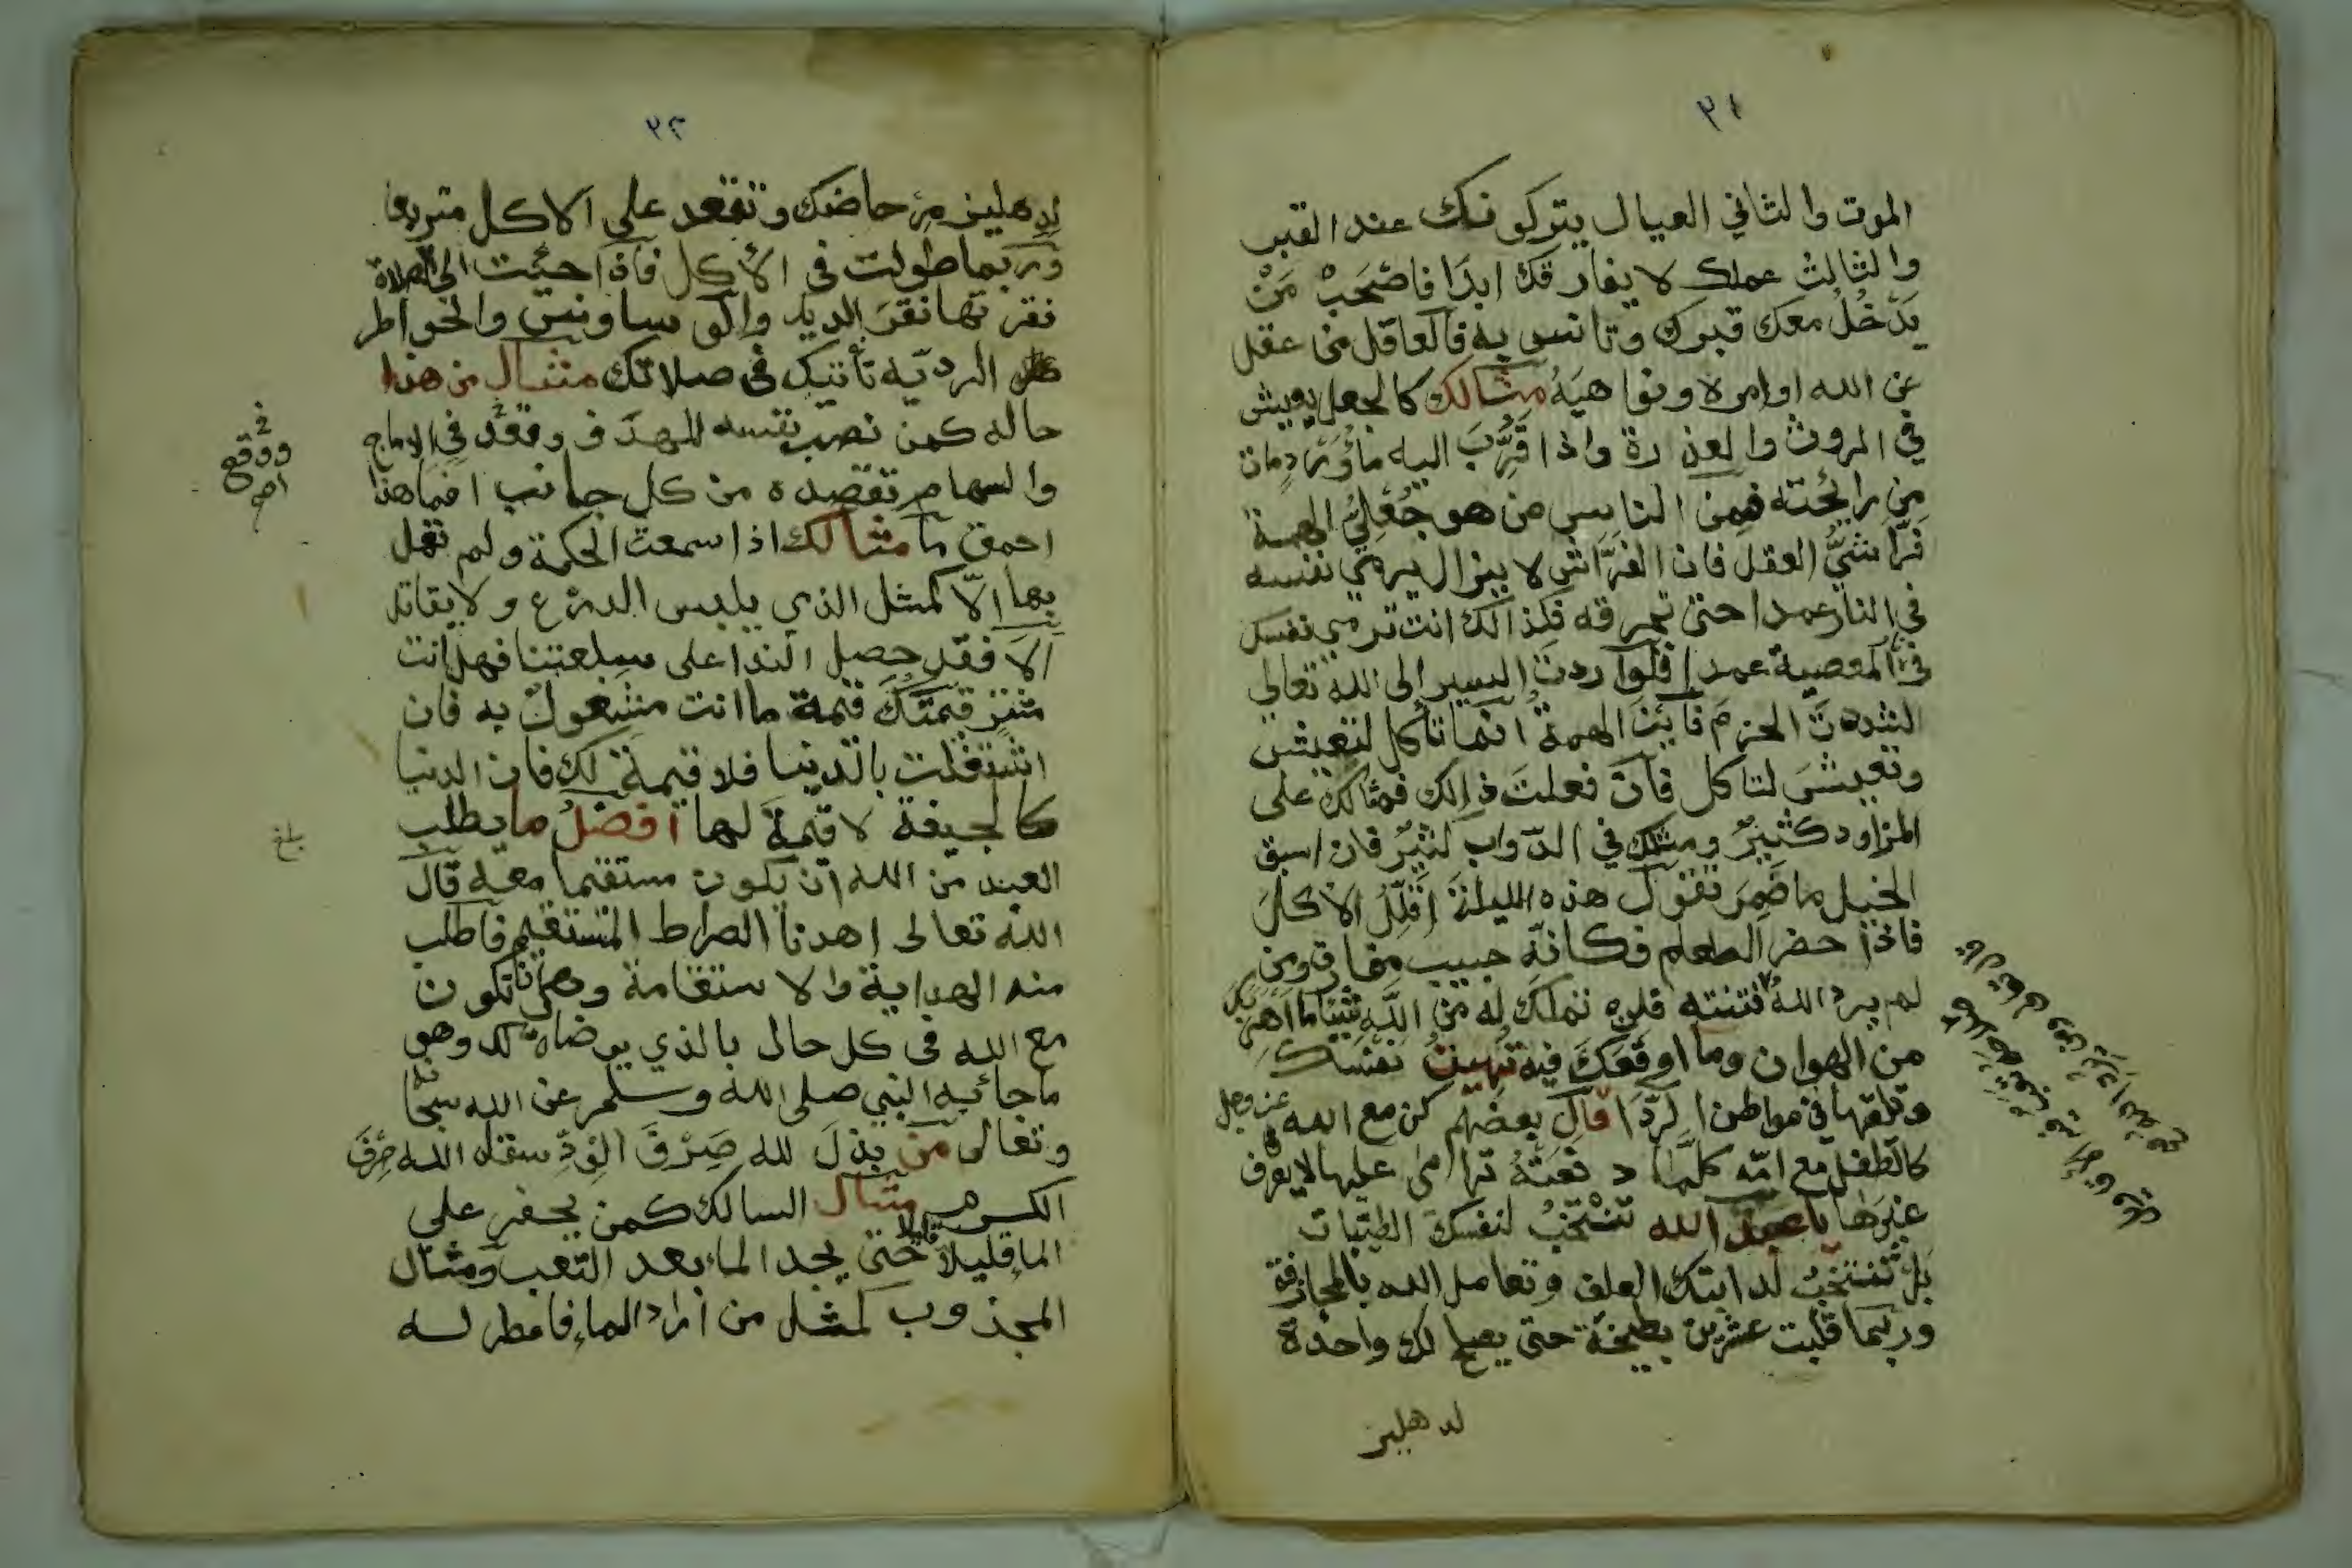 ٣١
الموت والثاني العيال يتركونك عند القبر
والثالث عملك لا يفارقك ابدًا فاصْحَبْ مَنْ
يَدْخُلُ معك قبرك وتانس به فالعاقل من عقل
عن الله اوامره ونواهيَهُ مثالك كالجعل يعيش
في الروث والعذرة واذا قُرِّبَ اليه ماوَرْد مات
من رائحته فمن الناس من هو جُعَلِيُّ الهمة
فَرَاشيُّ العقل فان الفَرَاش لا يزال يرمي نفسه
في النار عمدا حتى تحرقه فكذالك انت ترمي نفسك
في المعصية عمدا فلو اردت السير الى الله تعالى
لشددتَ الحزمَ فاين الهمة انما تاكل لتعيش
وتعيشَ لتاكل فان فعلتَ ذالك فمثالك على
المزاود كثيرٌ ومثلك في الدواب كثيرٌ فان اسبق
الخيل ما ضَمِرَ تقول هذه الليلة اُقَلِّلُ الاكلَ
فاذا حضر الطعام فكانّه حبيب مفارق ومن
لم يرد اللهُ فتنته فلن تملك له من اللّه شيئا ما اَهْوَنَكَ
من الهوان وما اوقعَكَ فيه تُهينُ نفسك
وتلقها في مواطن الرَّدَا قال بعضهم كن مع الله عز وجل
كالطفل مع امّه كلّما دفعَتْهُ ترامى عليها لا يعرف
غيرَهَا يا عبد الله تَنْتَخِبُ لنفسك الطيّبات
بل تَنتَخِبُ لدابتك العلف وتعامل الله بالمجازفة
وربّما قلّبت عشرين بطيخة حتى يصلح لك واحدة
لدهليز
٣٢
لدهليز مرحاضك وتقعد على الاكل متربعا
وربما طولت في الأكل فاذا جئت الى الصلاة
نقرتها نقرَ الديك والوساوس والخواطر
الرديّه تأتيك في صلاتك مثال من هذا
حاله كمن نصب نفسه للهدف وقعد في الاماج
والسهام تقصده من كل جانب افما هذا
احمق ما مثالك اذا سمعت الحكمة ولم تعمل
بها الّا كمثل الذي يلبس الدرع ولا يقاتل
اَلَا فقد حصل الندا على سلعتنا فهل انت
مشتر قيمتكَ قيمة ما انت مشغولٌ به فان
اشتغلت بالدنيا فلا قيمة لك فان الدنيا
كالجيفة لا قيمةَ لها افضلُ ما يطلب
العبد من الله ان يكون مستقيما معه قال
الله تعالى اهدنا الصراط المستقيم فاطلب
منه الهداية والاستقامة وهي ان تكون
مع الله في كل حال بالذي يرضاه لك وهو
ما جائ به النبي صلى الله وسلم عن الله سبحانه
وتعالى من بذلَ لله صِرْفَ الوِدِّ سقاه الله صِرْفَ
الكرم مثال السالك كمن يحفر على
الماء قليلا قليلا حتى يجد الماء بعد التعب ومثال
المجذوب كمثل من اراد الماء فامطر له
ووقع
بلغ